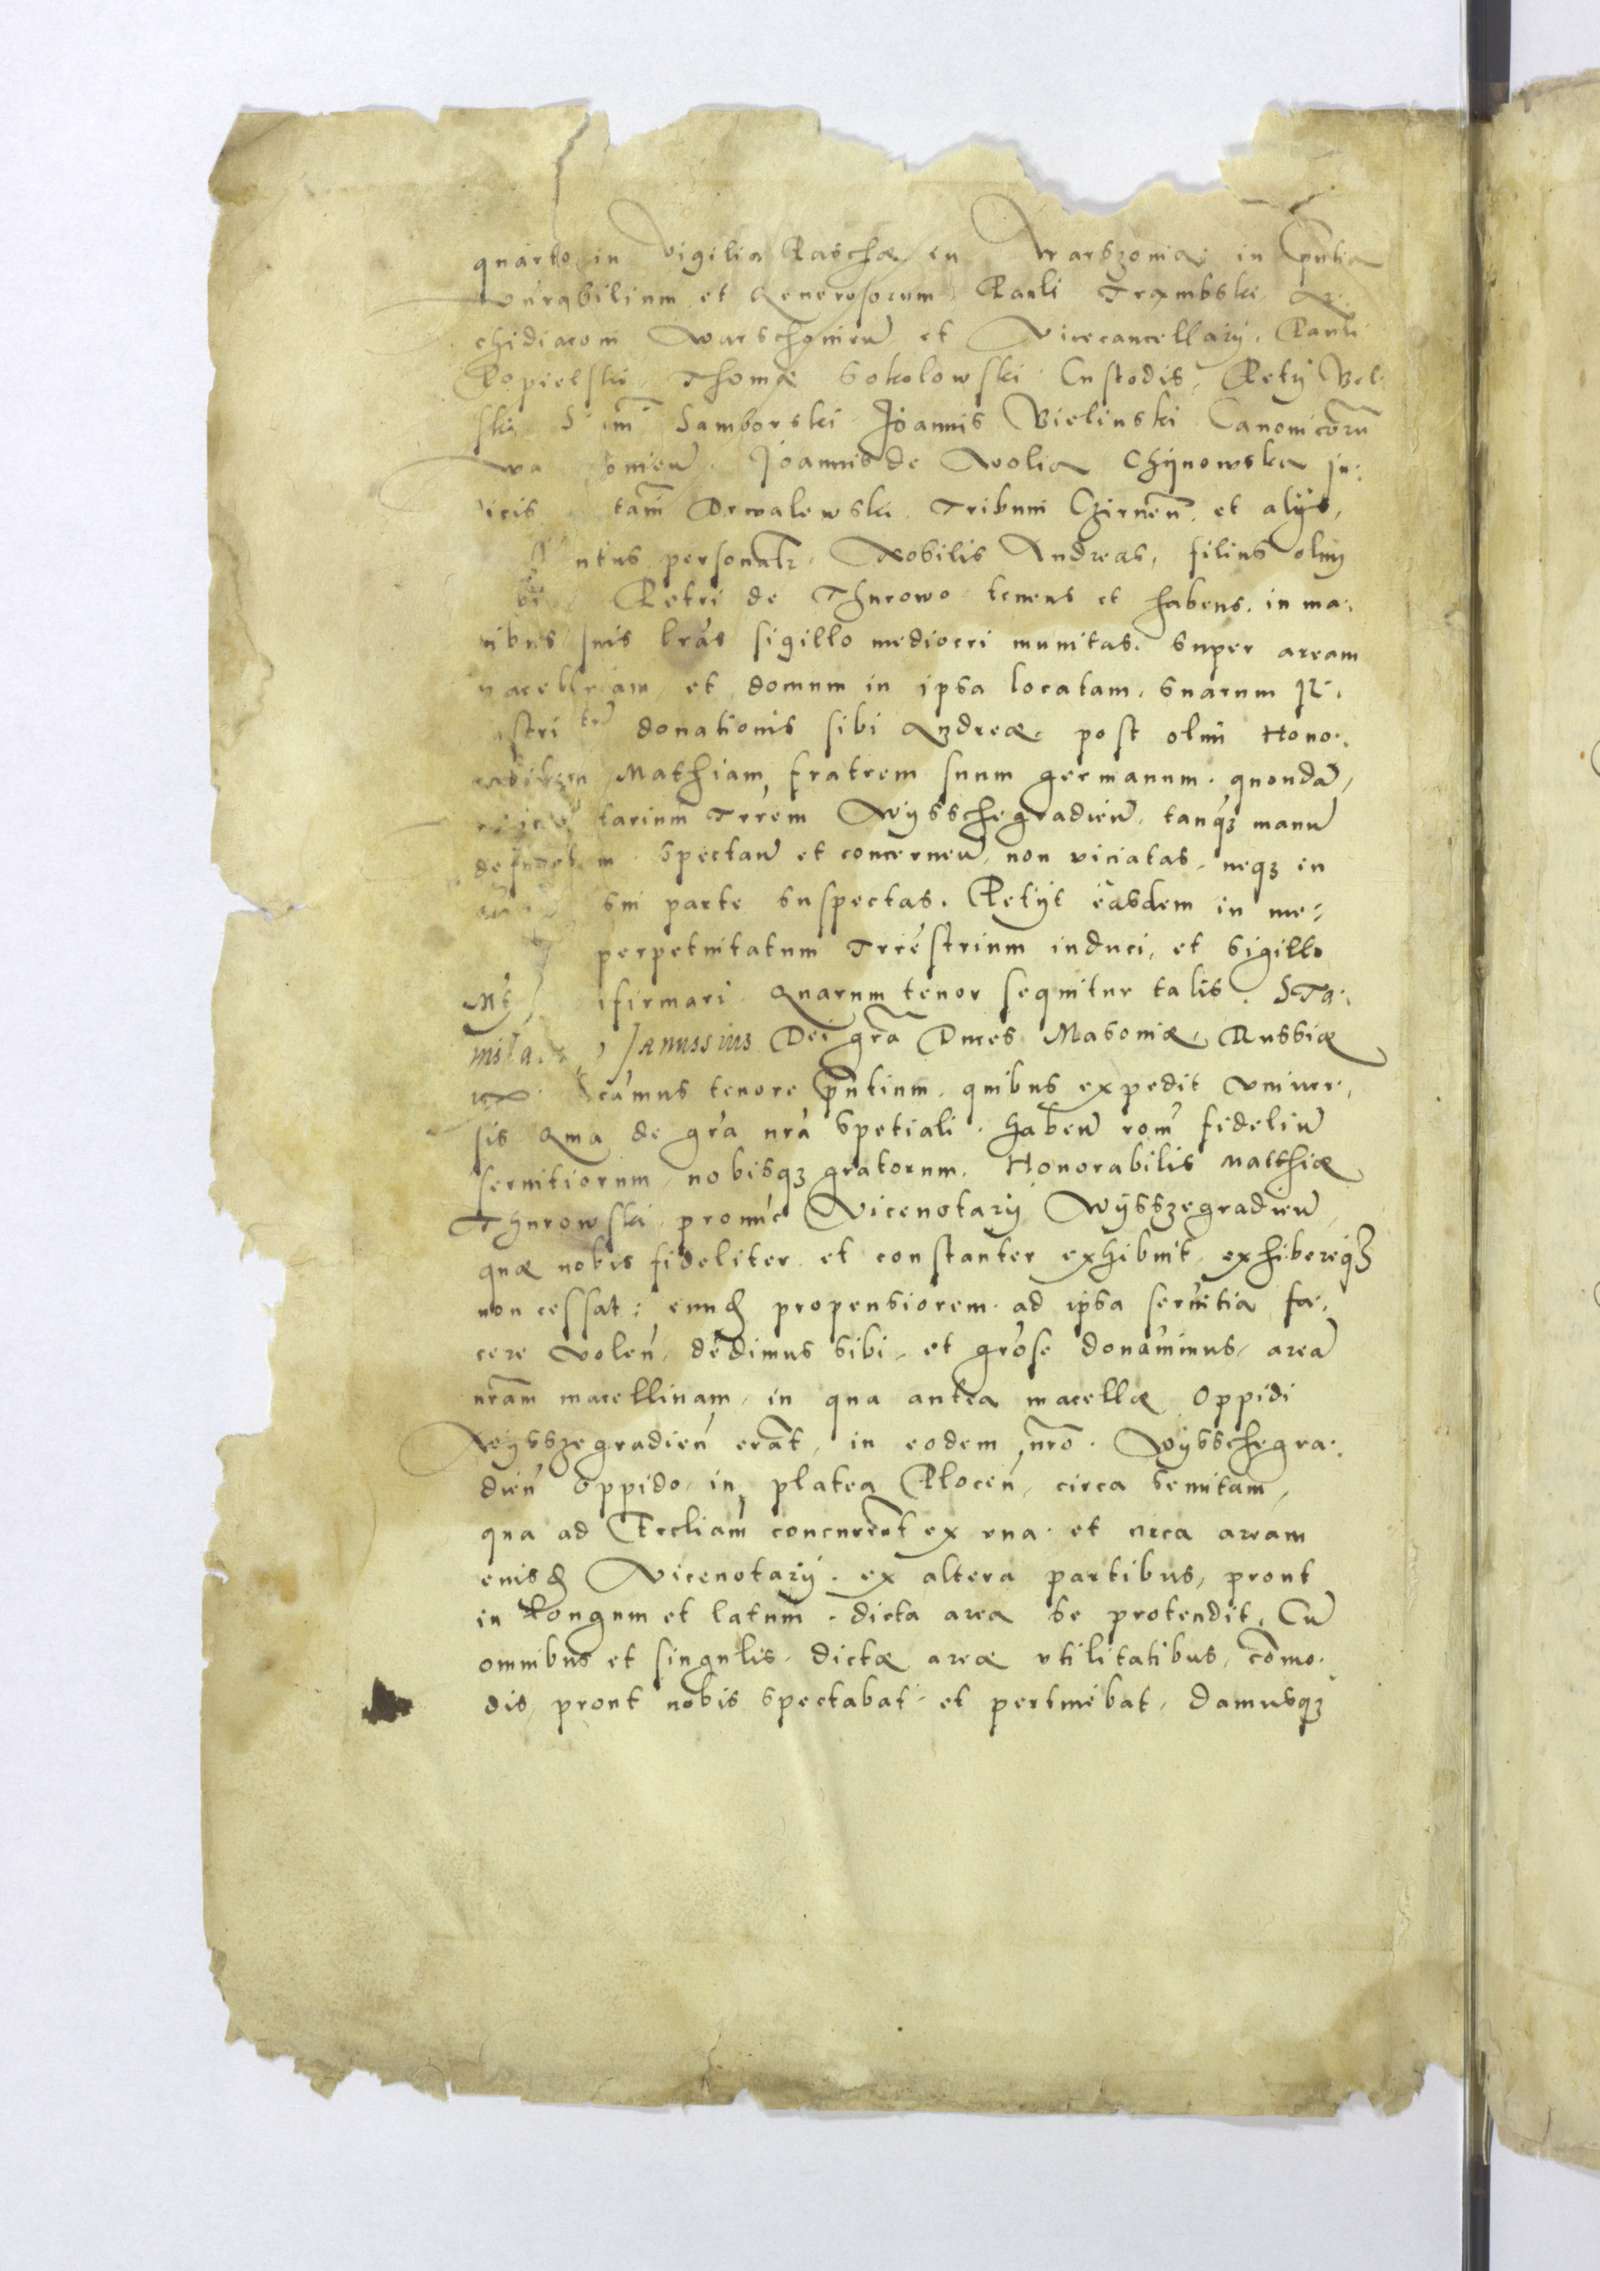 quarto in Vigilia Paschæ, en Warszoviæ in pñtia
Vúrabilium et Generosorum Pauli Trambski Ar:
chidiaconi Warschovieñ et Vicecancellarÿ, Pauli
Popielski Thomæ Sokolowski Custodis, Petÿ Vol:
ski Samborski Joannis Bielinski Canonicorũ
Joannis de Wolia Chÿnowska Ju:
dicis Drwalewski Tribuni Czirneñ et alÿs,
personalr, Nobilis Andreas, filius olim
Petri de Thurowo tenens et habens in ma:
nibus suis lrás sigillo mediocri munitas super aream
macellinam et domum in ipsa locatam, suarum
donationis sibi Andreæ post olim Hono:
rabilem Mathiam fratrem suum germanum quondã,
tarium Trrém Wÿsschegradieñ, tanq̃ʒ manũ
defunctam spectañ et concerneñ, non viciatas, neqʒ in
sui parte suspectas. Petÿt eásdem in me:
perpetuitatum Trréstrium induci, et sigillo
firmari. Quarum tenor sequitur talis. STa:
nisla Janussius Dei gr̃a Duces Masoviæ, Russiæ
camus tenore pñtium quibus expedit vniuer:
sis Qma de gr̃a nrá spetiali habeñ romũ fideliũ
seruitiorum, nobisqʒ gratorum, Honorabilis Matthiæ
Thurowski pronúc Vicenotarÿ Wÿsszegradieñ,
quæ nobis fideliter et constanter exhibuit exhibereqʒ
non cessat: eund propensiorem ad ipsa seruitia fa:
cere volen, dedimus sibi, et gróse donauimus, areã
nrãm macellinam, in qua antea macellæ Oppidi
Wÿsszegradieñ erãt, in eodem nrõ Wÿsschegra:
dieñ oppido, in platea Ploceñ, circa semitam,
qua ad Eccliam concurrũt ex vna et circa aream
eiusd Vicenotarÿ ex altera partibus, prout
in longum et latum dicta area se protendit, Cũ
omnibus et singulis dictæ areæ vtilitatibus, cõmo:
dis, prout nobis spectabat et pertinébat, damusqʒ